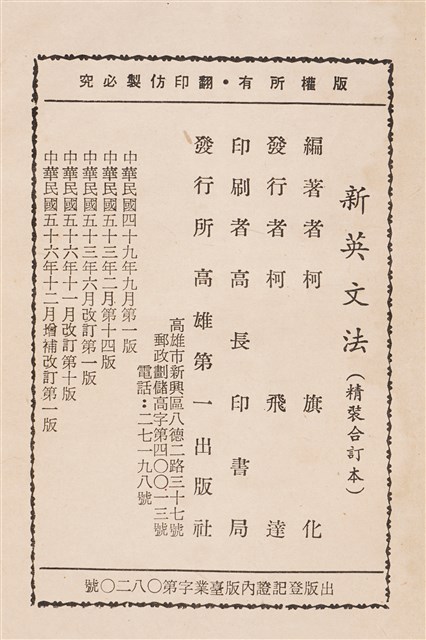 版權所有•翻印仿製必究
新英文法(精裝合訂本)
編著者柯旗化
發行者柯飛達
印刷者高長印書局
發行所高雄第一出版社
高雄市新興區八德二路三十七號
郵政劃儲高字第四〇〇一三號
電話:二七一九八號
中華民國四十九年九月第一版
中華民國五十三年二月第十四版
中華民國五十三年六月改訂第一版
中華民國五十六年十一月改訂第十版
中華民國五十六年十二月增補改訂第一版
出版登記證內版臺業字第〇八二〇號